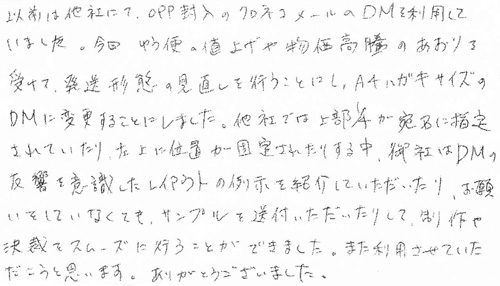 以前は他社にて、OPP封入のクロネコメールのDMを利用して
いました。今回 ゆう便の値上げや物価高騰のあおりを
受けて、発送形態の見直しを行うことにし、A4ハガキサイズの
DMに変更することにしました。他社では上部1/4が宛名に指定
されていたり、左上に位置が固定されたりする中、御社はDMの
反響を意識したレイアウトの例示を紹介していただいたり、お願
いをしていなくても、サンプルを送付いただいたりして、制作や
決裁をスムーズに行うことができました。また利用させていた
だこうと思います。ありがとうございました。